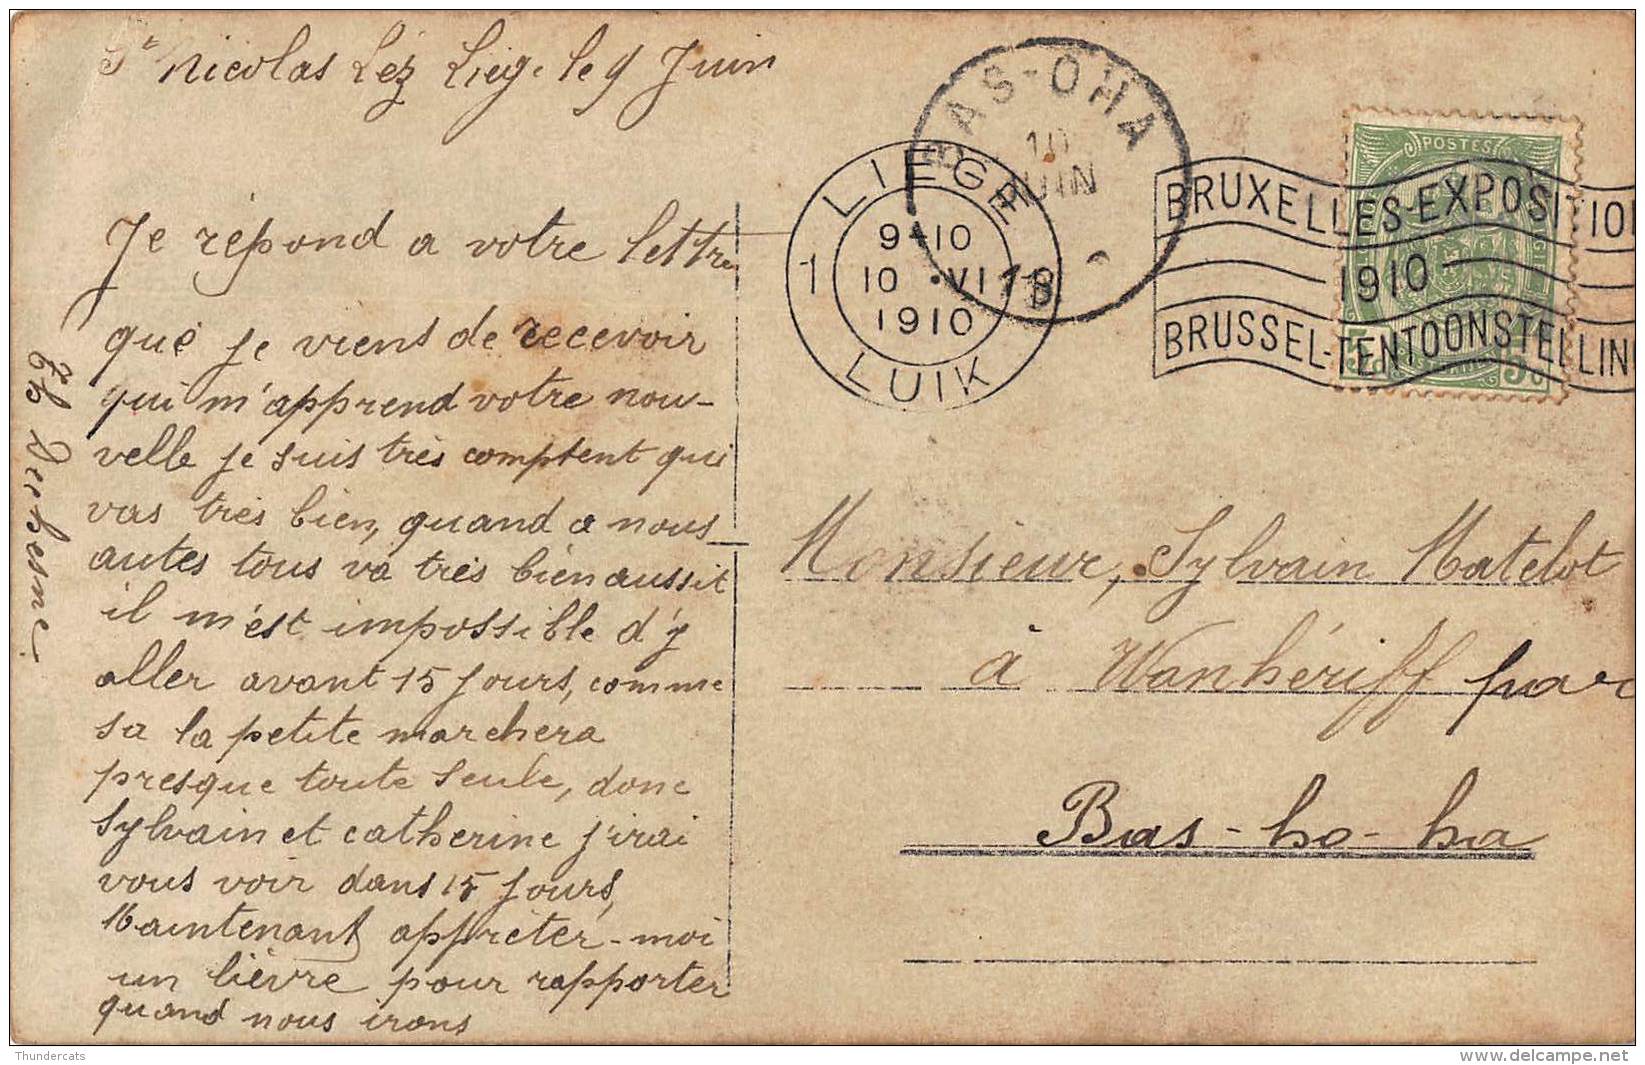 St Nicolas Lez Lièg. le 9 Juin
Je répond a votre lettre
que je viens de recevoir
qui m'apprend votre nou-
velle je suis très comptent qui
vas très bien, quand a nous
autes tous va très bien aussit
il m'est impossible d'y
aller avant 15 jours, comme
sa la petite marchera
presque toute seule, donc
Sylvain et catherine j'irai
vous voir dans 15 jours,
Maintenant apprêter-moi
un lièvre pour rapporter
quand nous irons
Th Duchesne
BAS-OHA
10
JUIN
LIEGE
9-10
1 10 VI 1B
1910
LUIK
POSTES
BRUXELLES-EXPOSITION
1910
BRUSSEL-TENTOONSTELLING
5 5
Monsieur, Sylvain Matelot
à Wanhériff par
Bas-ho-ha
Thundercats
www.delcampe.net